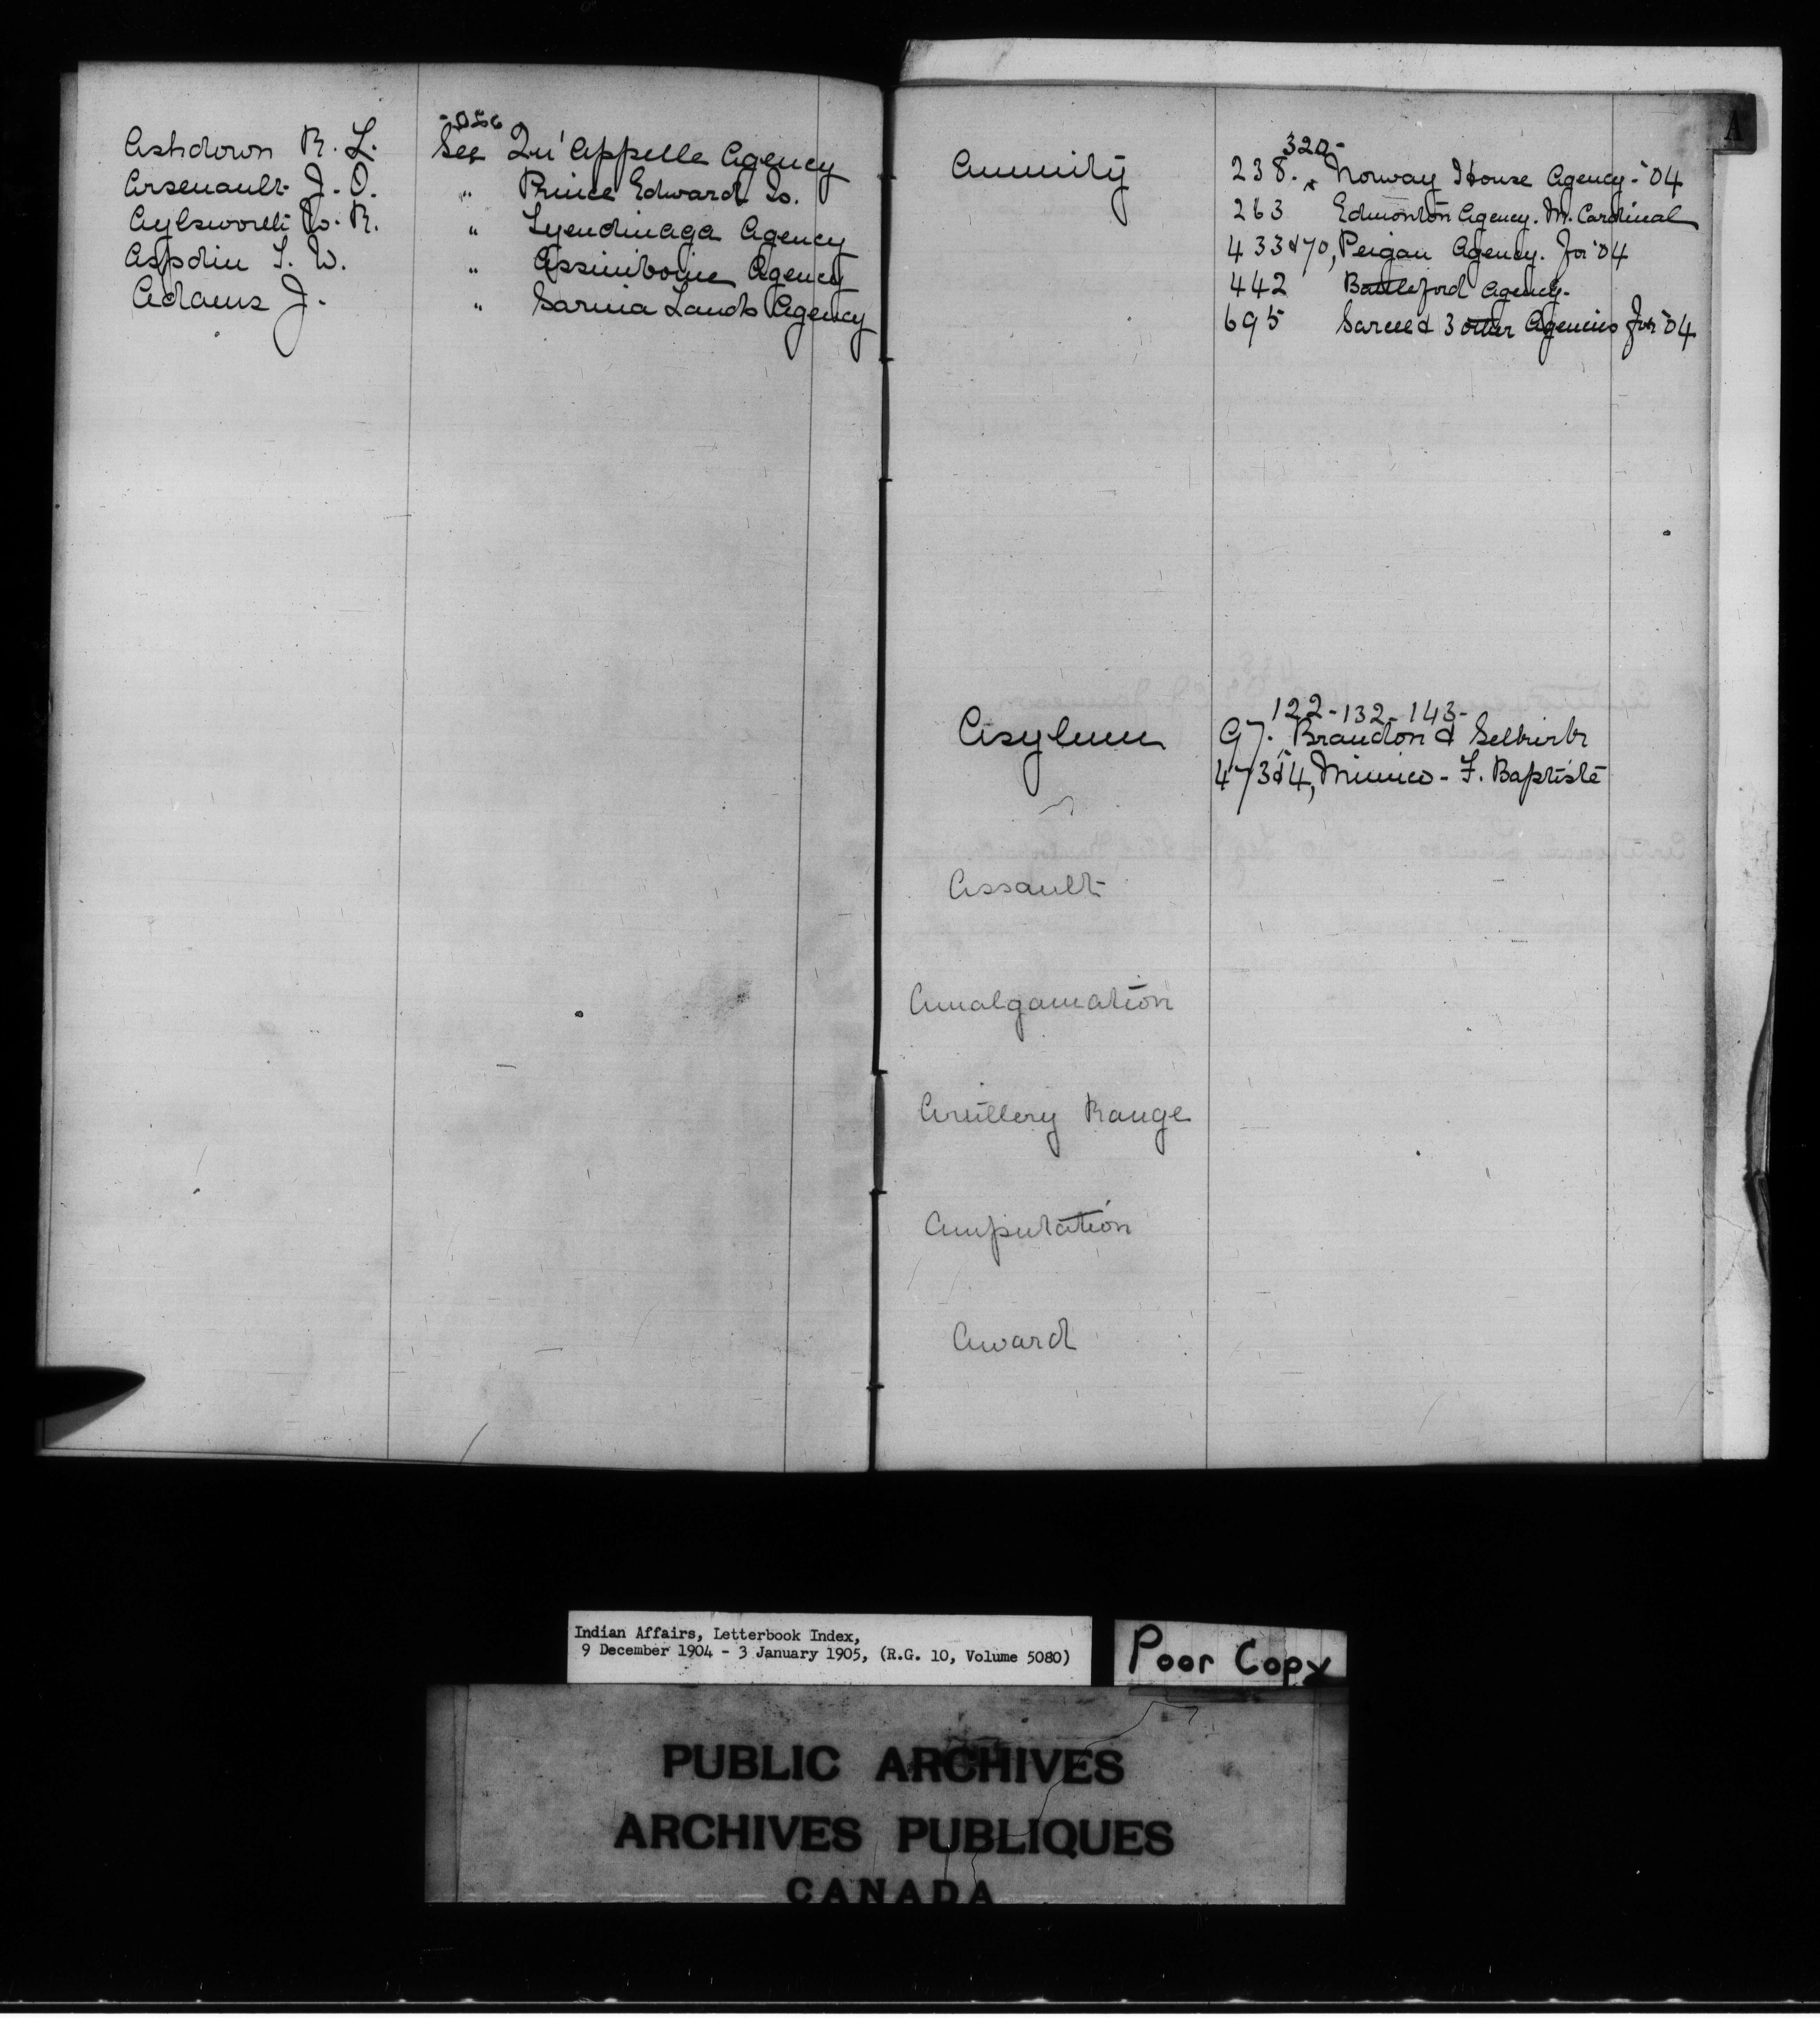 Ashdown R. L. See Qu'Appelle Agency
Arsenault J. O. " Prince Edward Is.
Aylsworth W. R. " Tyendinaga Agency
Aspdin T. W. " Assiniboine Agency
Adams J. " Sarnia Lands Agency
A
Annuity
320-
238. Norway House Agency - '04
263 Edmonton Agency. M. Cardinal
433 & 70, Peigan Agency. for '04
442 Battleford Agency.
695 Sarcee & 3 other Agencies for '04
122-132-143-
Asylum 97. Brandon & Selkirk
473 & 4, Mimico - F. Baptiste
Assault
Amalgamation
Artillery Range
Amputation
Award
Indian Affairs, Letterbook Index,
9 December 1904 - 3 January 1905, (R.G. 10, Volume 5080)
Poor Copy
PUBLIC ARCHIVES
ARCHIVES PUBLIQUES
CANADA